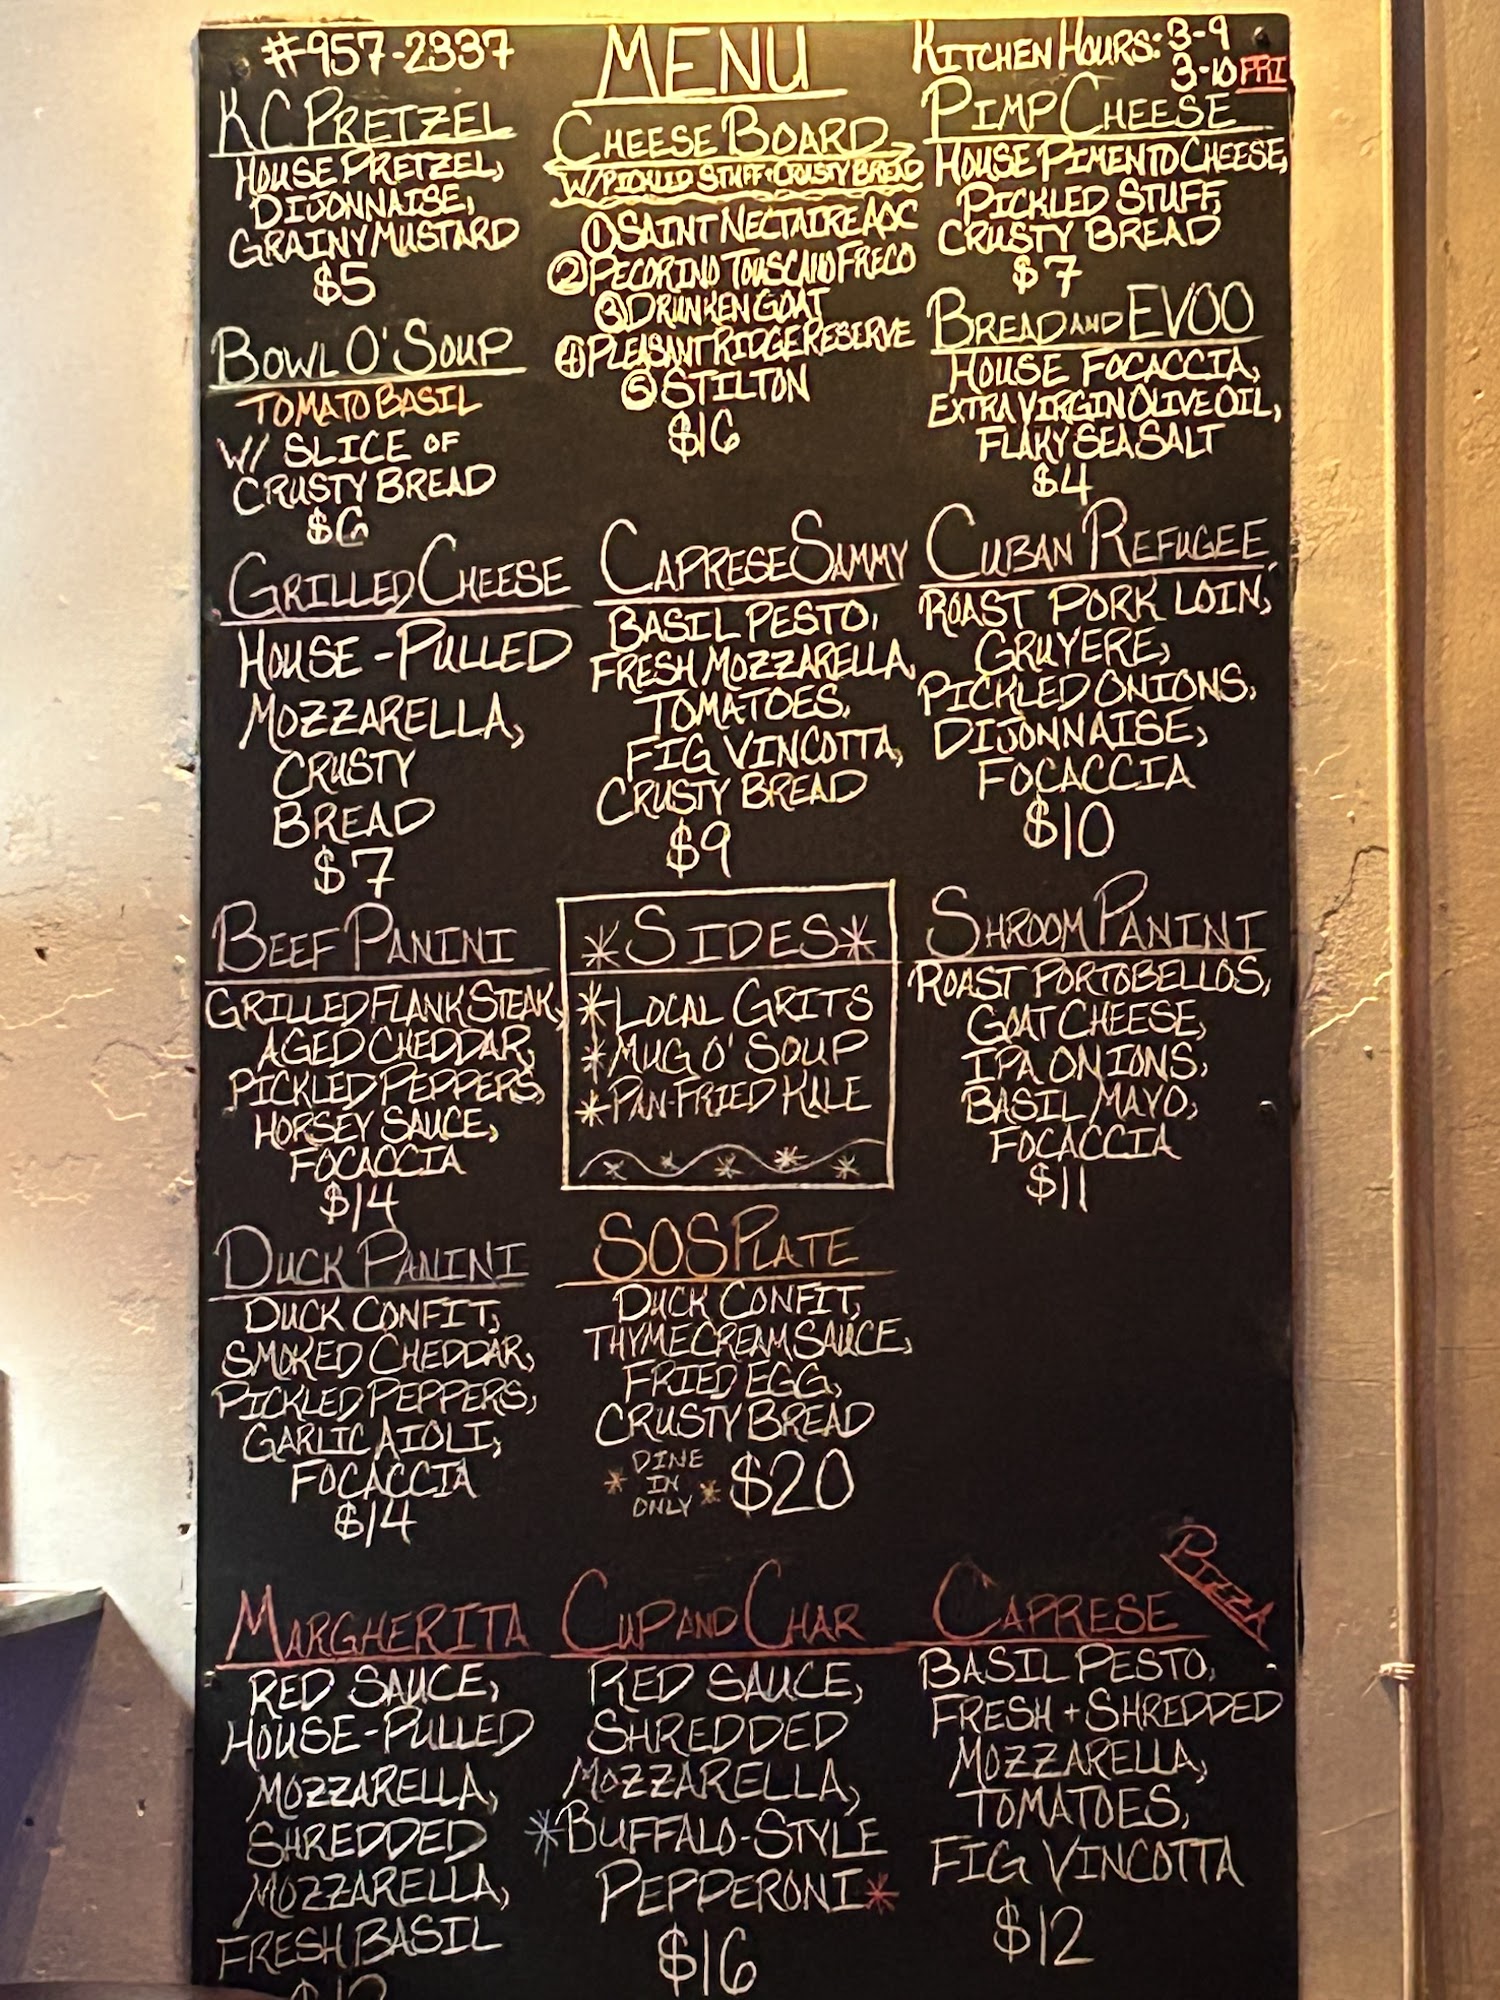 #957-2337
MENU
KITCHEN HOURS: 3-9
3-10 FRI
KC PRETZEL
HOUSE PRETZEL,
DIJONNAISE,
GRAINY MUSTARD
$5
CHEESE BOARD
W/ PICKLED STUFF + CRUSTY BREAD
① SAINT NECTAIRE AOC
② PECORINO TOUSCANO FRECO
③ DRUNKEN GOAT
④ PLEASANT RIDGE RESERVE
⑤ STILTON
$16
PIMP CHEESE
HOUSE PIMENTO CHEESE,
PICKLED STUFF,
CRUSTY BREAD
$7
BOWL O' SOUP
TOMATO BASIL
W/ SLICE OF
CRUSTY BREAD
$6
BREAD AND EVOO
HOUSE FOCACCIA,
EXTRA VIRGIN OLIVE OIL,
FLAKY SEA SALT
$4
GRILLED CHEESE
HOUSE-PULLED
MOZZARELLA,
CRUSTY
BREAD
$7
CAPRESE SAMMY
BASIL PESTO,
FRESH MOZZARELLA,
TOMATOES,
FIG VINCOTTA,
CRUSTY BREAD
$9
CUBAN REFUGEE
ROAST PORK LOIN,
GRUYERE,
PICKLED ONIONS,
DIJONNAISE,
FOCACCIA
$10
BEEF PANINI
GRILLED FLANK STEAK,
AGED CHEDDAR,
PICKLED PEPPERS,
HORSEY SAUCE,
FOCACCIA
$14
*SIDES*
*LOCAL GRITS
*MUG O' SOUP
*PAN-FRIED KALE
SHROOM PANINI
ROAST PORTOBELLOS,
GOAT CHEESE,
IPA ONIONS,
BASIL MAYO,
FOCACCIA
$11
DUCK PANINI
DUCK CONFIT,
SMOKED CHEDDAR,
PICKLED PEPPERS,
GARLIC AIOLI,
FOCACCIA
$14
SOS PLATE
DUCK CONFIT,
THYME CREAM SAUCE,
FRIED EGG,
CRUSTY BREAD
* DINE IN ONLY * $20
PIZZA
MARGHERITA
RED SAUCE,
HOUSE-PULLED
MOZZARELLA,
SHREDDED
MOZZARELLA,
FRESH BASIL
CUP AND CHAR
RED SAUCE,
SHREDDED
MOZZARELLA,
*BUFFALO-STYLE
PEPPERONI*
$16
CAPRESE
BASIL PESTO,
FRESH + SHREDDED
MOZZARELLA,
TOMATOES,
FIG VINCOTTA
$12